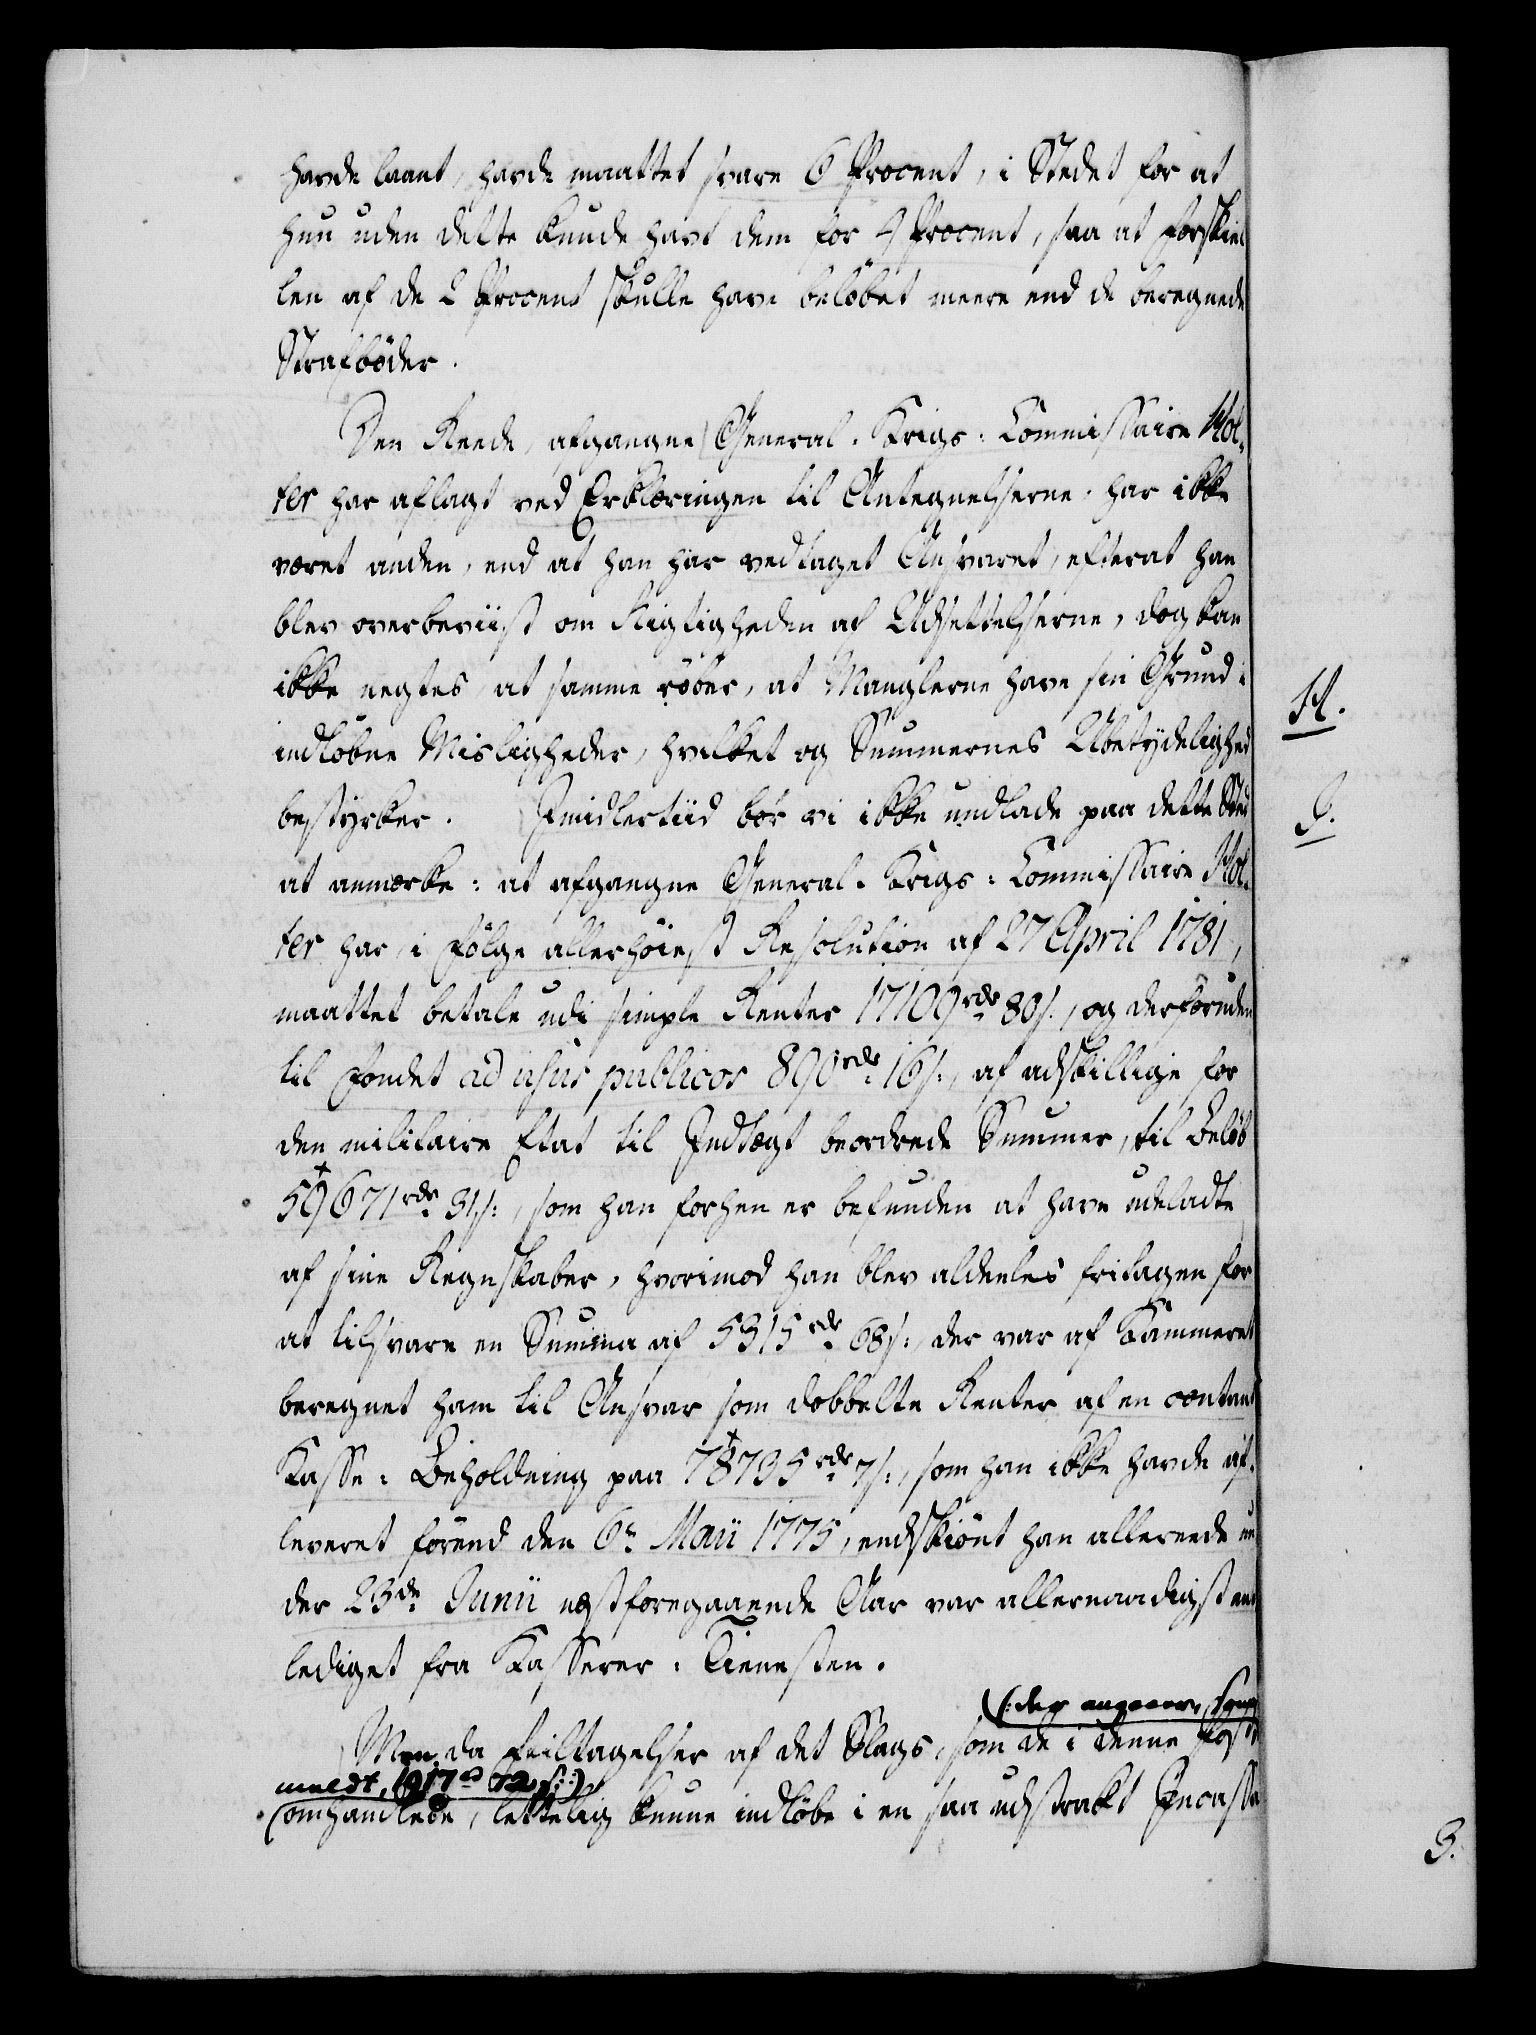 havde laant, havde maattet svare 6 Procent, i Stedet for at
hun uden dette kunde havt dem for 4 Procent, saa at Forskiel
len af de 2 Procent skulle have beløbet meere end de beregnede
Strafbøder.
Den Reede, afgangne General-Krigs-Commissaire Hol-
ter har aflagt ved Erklæringen til Antegnelserne, har ikke
været anden, end at han har vedtaget Ansvaret, efterat han
blev overbeviist om Rigtigheden af Udsettelserne, dog kan
ikke negtes, at samme røber, at Manglerne have sin Grund i
indløbne Misligheder, hvilket og Summernes Ubetydelighed
bestyrker. Imidlertiid bør vi ikke undlade paa dette Sted
at anmærke: at afgangne General-Krigs-Commissaire Hol-
ter har, i Følge allerhøiest Resolution af 27 April 1781,
maattet betale udi simple Renter 17109 rdr 80 s., og derforuden
til Fondet ad usus publicos 890 rdr 16 s:, af adskillige for
den militaire Etat til Indtægt beordrede Summer, til Beløb
59671 rdr 31 s:, som han forhen er befunden at have udeladte
af sine Regnskaber, hvorimod han blev aldeeles fritagen for
at tilsvare en Summa af 5315 rdr 68 s:, der var af Kammeret
beregnet ham til Ansvar som dobbelte Renter af en contant
Kasse-Beholdning paa 78735 rdr 7 s:, som han ikke havde af-
leveret førend den 6te Maii 1775, endskiønt han allereede un
der 23de Junii næstforegaaende Aar var allernaadigst ent
lediget fra Kasserer-Tienesten.
(: der angaaer,
Men da Feiltagelser af det Slags, som de i denne Post
meldt, 1917 rd 72 s:)
omhandlede, lettelig kunne indløbe i en saa udstrakt Incassa
H.
J.
3.